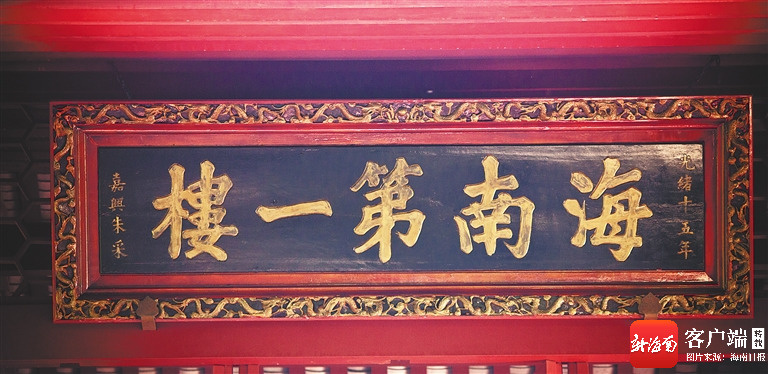 光緒十五年
海南第一樓
嘉興朱采
新海南 客户端
图片来源：海南日报